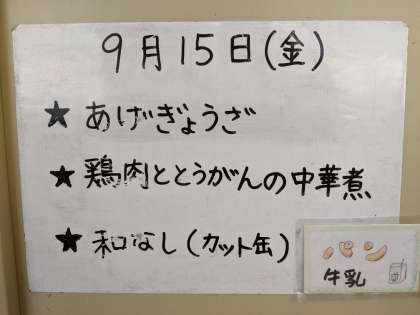 9月15日(金)
★ あげぎょうざ
★ 鶏肉ととうがんの中華煮
★ 和なし(カット缶)
パン
牛乳